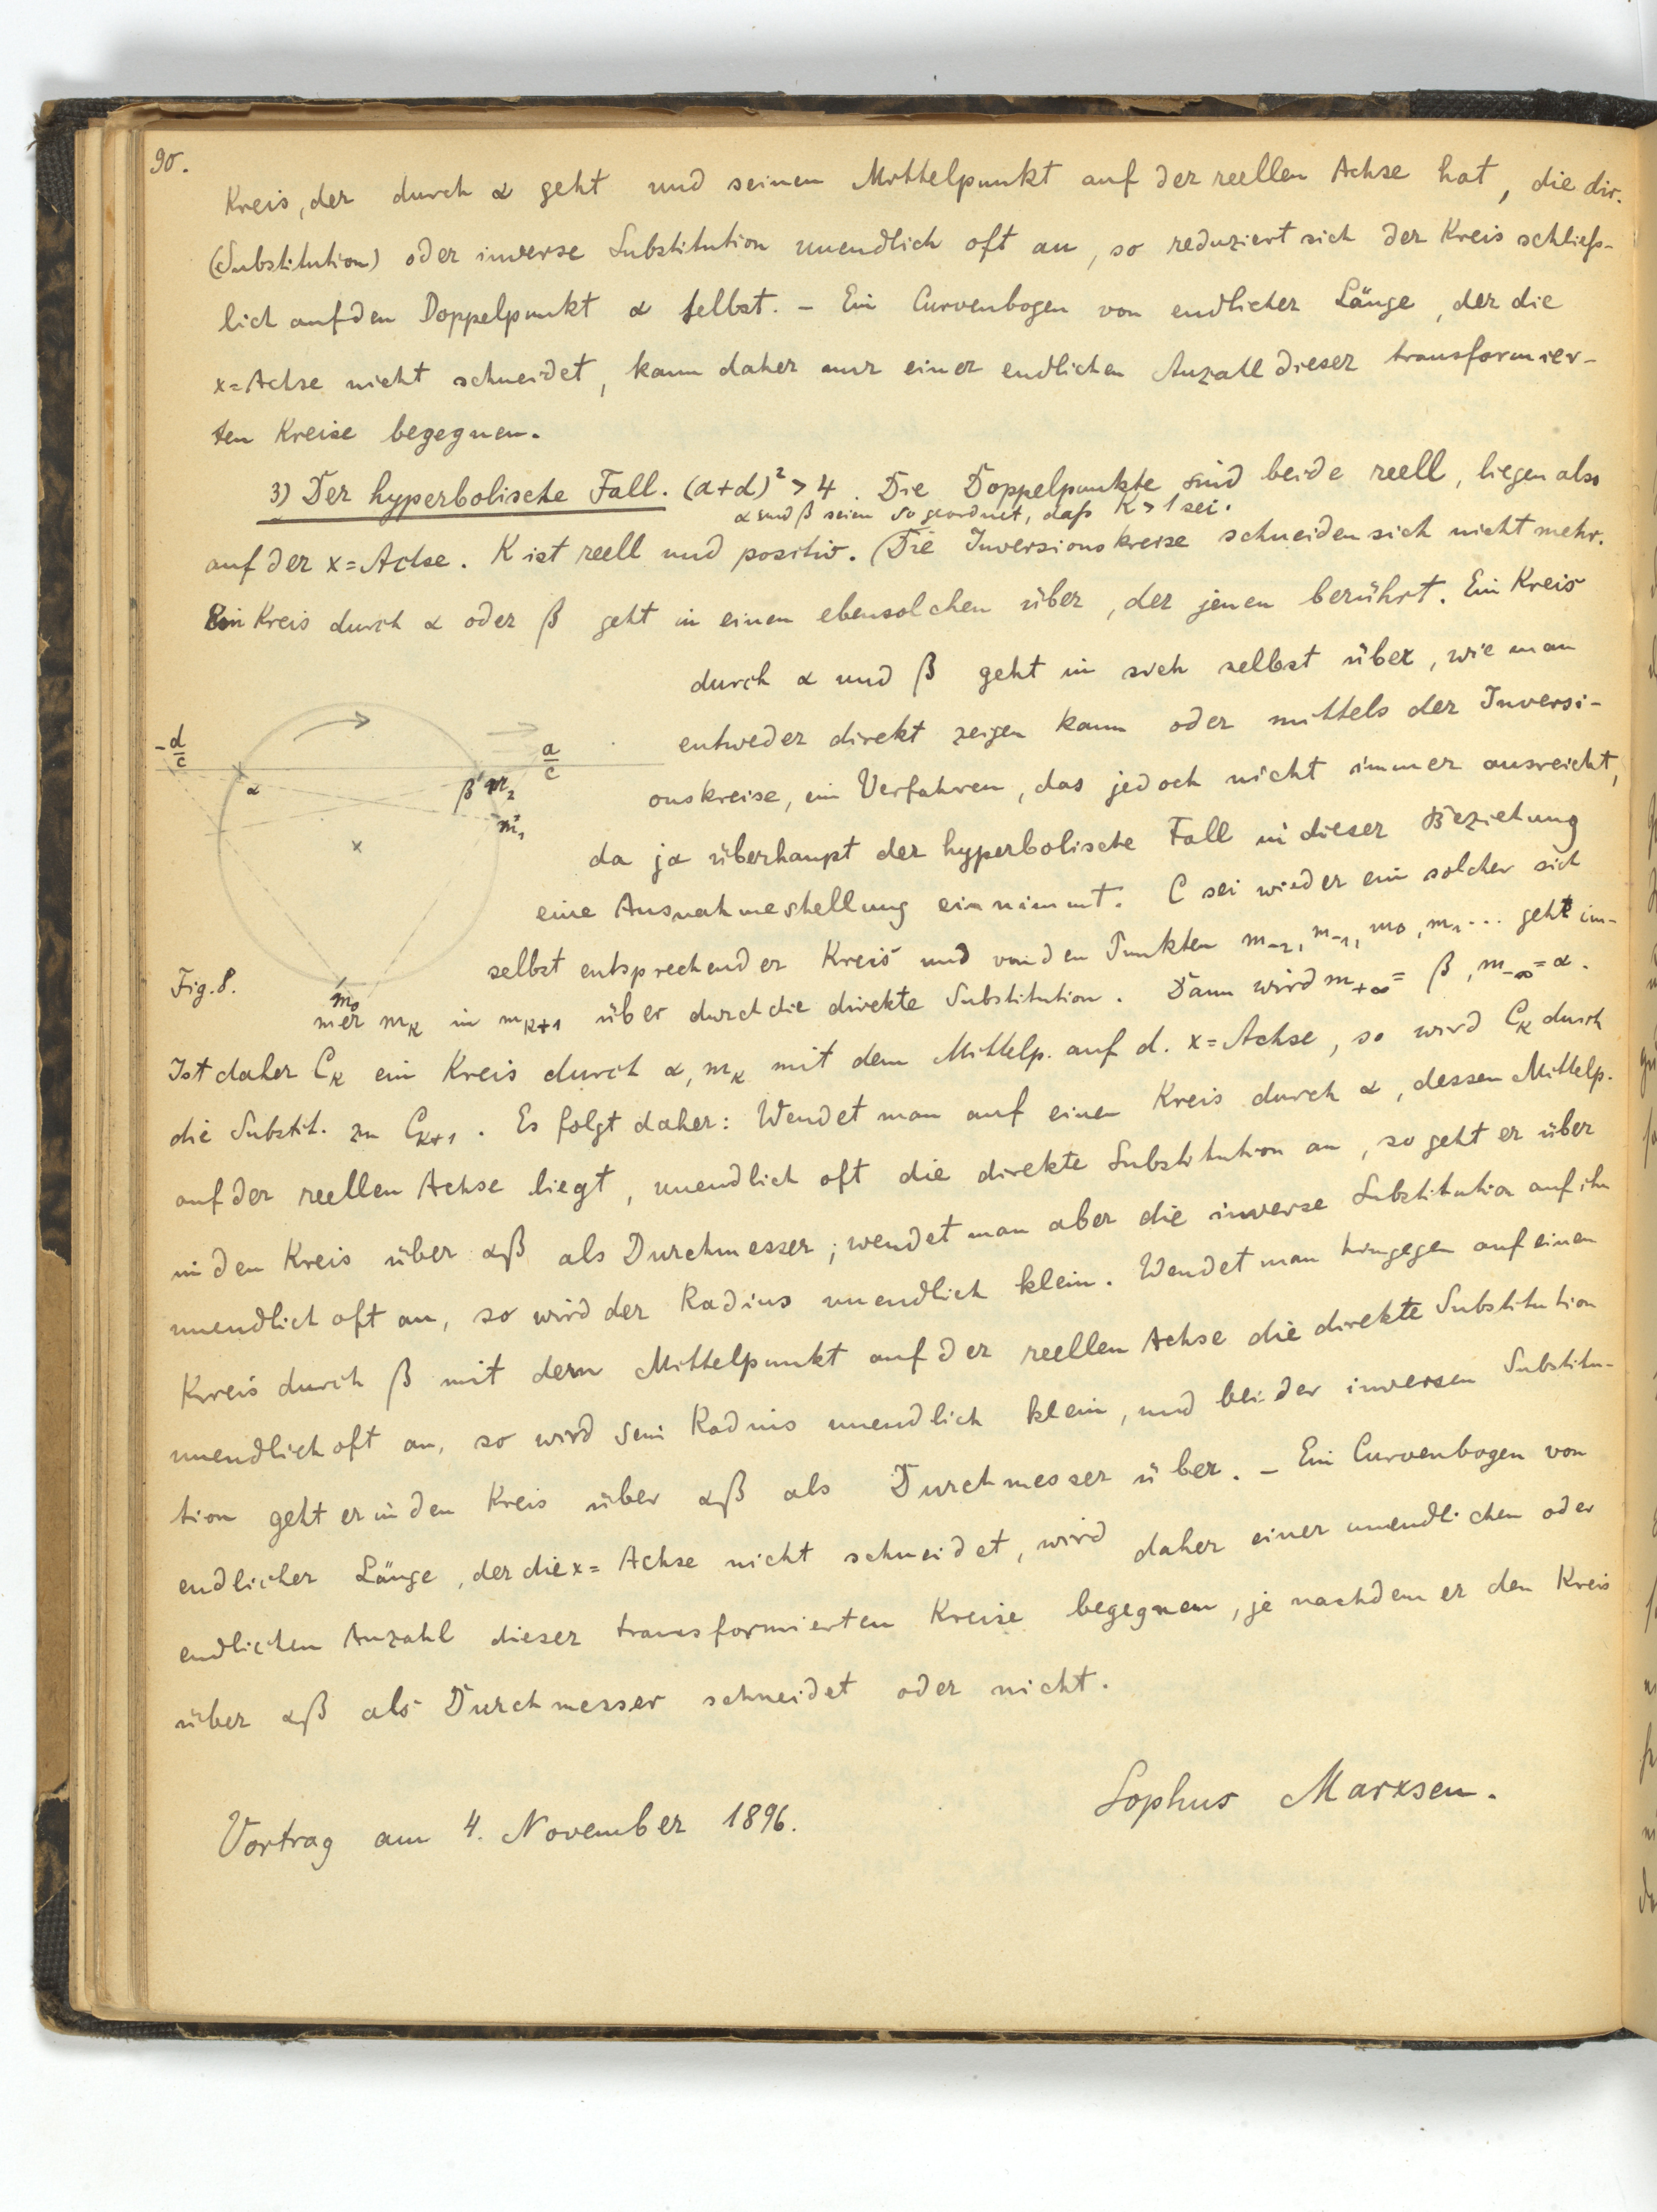 90.
Kreis, der durch α geht und seinen Mittelpunkt auf der reellen Achse hat, die dir.
(Substitution) oder inverse Substitution unendlich oft an, so reduziert sich der Kreis schließ-
lich auf den Doppelpunkt α selbst. – Ein Curvenbogen von endlicher Länge, der die
x=Achse nicht schneidet, kann daher nur einer endlichen Anzahl dieser transformier-
ten Kreise begegnen.
3) Der hyperbolische Fall. (a+d)² > 4. Die Doppelpunkte sind beide reell, liegen also
α und β seien so geordnet, daß K > 1 sei.
auf der x=Achse. K ist reell und positiv. (Die Inversionskreise schneiden sich nicht mehr.
Ein Kreis durch α oder β geht in einen ebensolchen über, der jenen berührt. Ein Kreis
durch α und β geht in sich selbst über, wie man
entweder direkt zeigen kann oder mittels der Inversi-
onskreise, ein Verfahren, das jedoch nicht immer ausreicht,
da ja überhaupt der hyperbolische Fall in dieser Beziehung
eine Ausnahmestellung einnimmt. C sei wieder ein solcher sich
selbst entsprechender Kreis und von den Punkten m₋₂, m₋₁, m₀, m₁... geht im-
mer mₖ in mₖ₊₁ über durch die direkte Substitution. Dann wird m₊∞ = β, m₋∞ = α.
-d/c
α
β
m₂
a/c
m₁
m₀
Fig. 8.
Ist daher Cₖ ein Kreis durch α, mₖ mit dem Mittelp. auf d. x=Achse, so wird Cₖ durch
die Substit. zu Cₖ₊₁. Es folgt daher: Wendet man auf einen Kreis durch α, dessen Mittelp.
auf der reellen Achse liegt, unendlich oft die direkte Substitution an, so geht er über
in den Kreis über αβ als Durchmesser; wendet man aber die inverse Substitution auf ihn
unendlich oft an, so wird der Radius unendlich klein. Wendet man hingegen auf einen
Kreis durch β mit dem Mittelpunkt auf der reellen Achse die direkte Substitution
unendlich oft an, so wird sein Radius unendlich klein, und bei der inversen Substitu-
tion geht er in den Kreis über αβ als Durchmesser über. – Ein Curvenbogen von
endlicher Länge, der die x=Achse nicht schneidet, wird daher einer unendlichen oder
endlichen Anzahl dieser transformierten Kreise begegnen, je nachdem er den Kreis
über αβ als Durchmesser schneidet oder nicht.
Sophus Marxsen.
Vortrag am 4. November 1896.